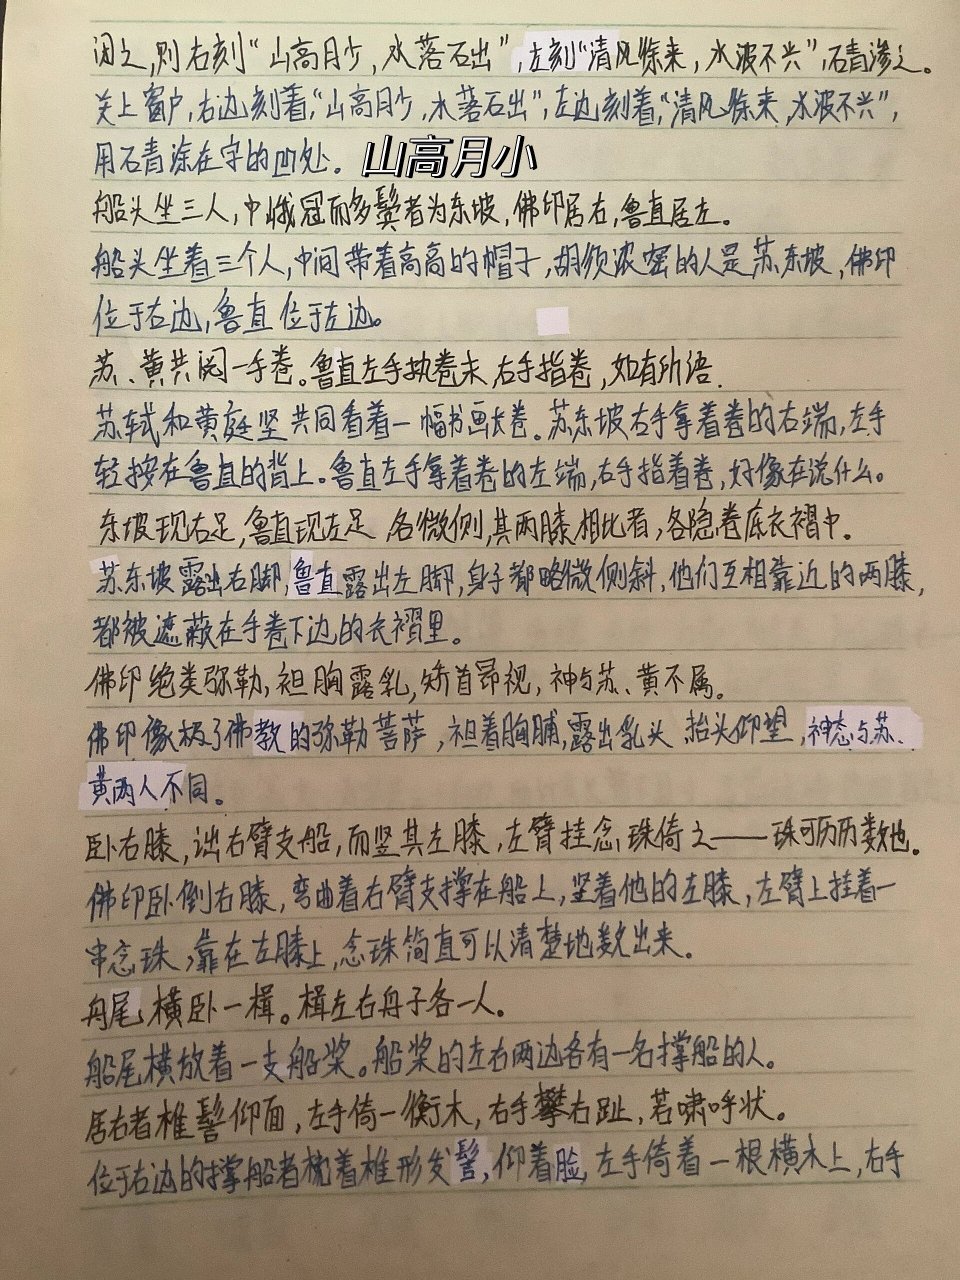 闭之,则右刻“山高月少,水落石出”,左刻“清风徐来,水波不兴”,石青渗之。
关上窗户,右边刻着,“山高月少,水落石出”,左边刻着,“清风徐来,水波不兴”,
用石青涂在字的凹处。 山高月小
船头坐三人,中峨冠而多髯者为东坡,佛印居右,鲁直居左。
船头坐着三个人,中间带着高高的帽子,胡须浓密的人是苏东坡,佛印
位于右边,鲁直位于左边。
苏、黄共阅一手卷。鲁直左手执卷末,右手指卷,如有所语.
苏轼和黄庭坚共同看着一幅书画长卷。苏东坡右手拿着卷的右端,左手
轻按在鲁直的背上。鲁直左手拿着卷的左端,右手指着卷,好像在说什么。
东坡现右足,鲁直现左足 各微侧,其两膝相比者,各隐卷底衣褶中。
苏东坡露出右脚,鲁直露出左脚,身子都略微侧斜,他们互相靠近的两膝,
都被遮蔽在手卷下边的衣褶里。
佛印绝类弥勒,袒胸露乳,矫首昂视,神与苏、黄不属。
佛印像极了佛教的弥勒菩萨,袒着胸脯,露出乳头 抬头仰望,神态与苏、
黄两人不同。
卧右膝,诎右臂支船,而竖其左膝,左臂挂念珠倚之——珠可历历数也。
佛印卧倒右膝,弯曲着右臂支撑在船上,竖着他的左膝,左臂上挂着一
串念珠,靠在左膝上,念珠简直可以清楚地数出来。
舟尾横卧一楫。楫左右舟子各一人。
船尾横放着一支船桨。船桨的左右两边各有一名撑船的人。
居右者椎髻仰面,左手倚一衡木,右手攀右趾,若啸呼状。
位于右边的撑船者梳着椎形发髻,仰着脸,左手倚着一根横木上,右手